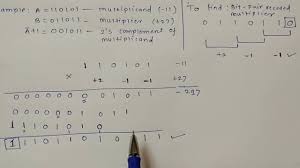 ample: A = 110101 → multiplicand (-11)
B = 011011 → multiplier (+27)
A+1 = 001011 → 2's complement of multiplicand
To find: Bit-Pair recoded multiplier
0 1 1 0 1 1 0
+2 -1 -1
1 1 0 1 0 1
× +2 -1 -1
0 0 0 0 0 0 0 0 1 0 1 1 -297
0 0 0 0 0 0 1 0 1 1
1 1 1 0 1 0 1 0
1 1 1 0 1 1 0 1 0 1 1 1